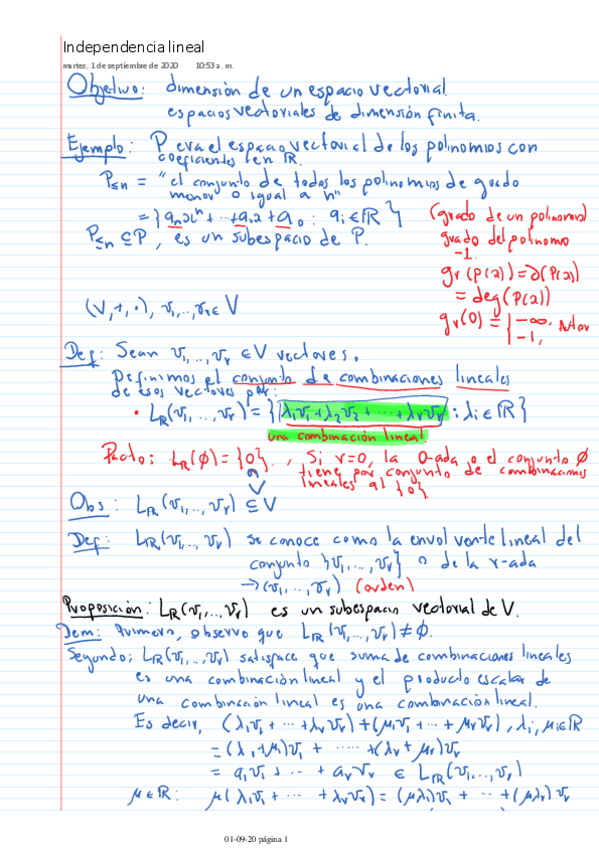 Independencia lineal
martes, 1 de septiembre de 2020 10:53 a. m.
Objetivo: dimensión de un espacio vectorial.
espacios vectoriales de dimensión finita.
Ejemplo: P era el espacio vectorial de los polinomios con
coeficientes en ℝ.
P≤n = "el conjunto de todos los polinomios de grado
menor o igual a n"
= { aₙxⁿ + ··· + a₁x + a₀ : aᵢ ∈ ℝ }
P≤n ⊆ P, es un subespacio de P.
(grado de un polinomio)
grado del polinomo
-1.
gr(p(x)) = ∂(P(x))
= deg(P(x))
gr(0) = { -∞, Autor
-1,
(V, +, ·), v₁, .., vᵣ ∈ V
Def: Sean v₁, .., vᵣ ∈ V vectores.
Definimos el conjunto de combinaciones lineales
de esos vectores por:
• Lℝ(v₁, .., vᵣ) = { λ₁v₁ + λ₂v₂ + ··· + λᵣvᵣ : λᵢ ∈ ℝ }
una combinación lineal
Pacto: Lℝ(∅) = {0}. , Si r=0, la 0-ada o el conjunto ∅
tiene por conjunto de combinaciones
lineales al {0}
V
Obs: Lℝ(v₁, .., vᵣ) ⊆ V
Def: Lℝ(v₁, .., vᵣ) se conoce como la envolvente lineal del
conjunto {v₁, ..., vᵣ} o de la r-ada
→ (v₁, ..., vᵣ) (orden)
Proposición: Lℝ(v₁, ... vᵣ) es un subespacio vectorial de V.
Dem: Primero, observo que Lℝ(v₁, .., vᵣ) ≠ ∅.
Segundo; Lℝ(v₁, .., vᵣ) satisface que suma de combinaciones lineales
es una combinación lineal y el producto escalar de
una combinación lineal es una combinación lineal.
Es decir, (λ₁v₁ + ··· + λᵣvᵣ) + (μ₁v₁ + ··· + μᵣvᵣ), λᵢ, μᵢ ∈ ℝ
= (λ₁ + μ₁)v₁ + ····· + (λᵣ + μᵣ)vᵣ
= a₁v₁ + ··· + aᵣvᵣ ∈ Lℝ(v₁, ..., vᵣ)
μ ∈ ℝ: μ(λ₁v₁ + ··· + λᵣvᵣ) = (μλ₁)v₁ + ·· + (μλᵣ)vᵣ
01-09-20 página 1